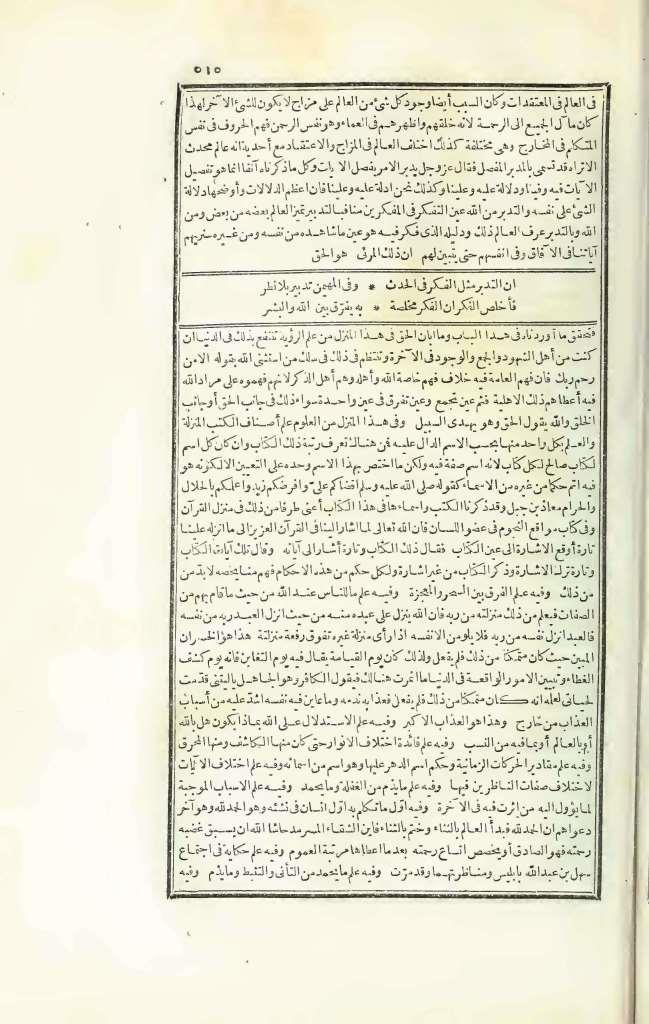 ٥١٥
فى العالم فى المعتقدات وكان السبب أيضا وجود كل شئ من العالم على مزاج لا يكون للشئ الآخر لهذا
كان مآل الجميع الى الرحمة لانه خلقهم وأظهرهم فى العماء وهو نفس الرحمن فهم كالحروف فى نفس
المتكلم فى المخارج وهى مختلفة كذلك اختلف العالم فى المزاج والاعتقاد مع أحديته انه عالم محدث
الاتراه قد تسمى بالمدبر المفصل فقال عز وجل يدبر الامر يفصل الآيات وكل ماذكرناه آنفا انما هو تفصيل
الآيات فيه وفينا ودلالة عليه وعلينا وكذلك نحن ادلة عليه وعلينا فان اعظم الدلالات وأوضحها دلالة
الشئ على نفسه والتدبر من الله عين التفكر فى المفكرين منا فبالتدبير تميز العالم بعضه من بعض ومن
الله وبالتدبر عرف العالم ذلك ودليله الذى فكر فيه هو عين ماشاهده من نفسه ومن غيره سنريهم
آياتنا فى الآفاق وفى انفسهم حتى يتبين لهم ان ذلك المرئى هو الحق
ان التدبر مثل الفكر فى الحدث * وفى المهيمن تدبير بلا نظر
فأخلص الفكر ان الفكر مخلصة * به يفرق بين الله والبشر
فتحقق ما أوردناه فى هذا الباب وما أبان الحق فى هذا المنزل من علم الرؤية تنتفع بذلك فى الدنيا ان
كنت من أهل الشهود والجمع والوجود فى الآخرة وتنتظم فى ذلك فى سلك من استثنى الله بقوله الا من
رحم ربك فان فهم العامة فيه خلاف فهم خاصة الله وأهله وهم أهل الذكر لانهم فهموه على مراد الله
فيه أعطاهم ذلك الاهلية فثم عين تجمع وعين تفرق فى عين واحدة سواء ذلك فى جانب الحق أو جانب
الخلق والله يقول الحق وهو يهدى السبيل وفى هذا المنزل من العلوم علم أصناف الكتب المنزلة
والعلم بكل واحد منها بحسب الاسم الدال عليه فمن هنالك تعرف رتبة ذلك الكتاب وان كان كل اسم
لكتاب صالح لكل كتاب لانه اسم صفة فيه ولكن ما اختص بهذا الاسم وحده على التعيين الا لكونه هو
فيه اتم حكما من غيره من الاسماء كقوله صلى الله عليه وسلم اقضاكم على وأفرضكم زيد وأعلمكم بالحلال
والحرام معاذ بن جبل وقد ذكرنا الكتب وأسماءها فى هذا الكتاب أعنى طرفا من ذلك فى منزل القرآن
وفى كتاب مواقع النجوم فى عضو اللسان فان الله تعالى لما أشار الينا فى القرآن العزيز الى ما أنزله علينا
تارة أوقع الاشارة الى عين الكتاب فقال ذلك الكتاب وتارة أشار الى آياته وقال تلك آيات الكتاب
وتارة ترك الاشارة وذكر الكتاب من غير اشارة ولكل حكم من هذه الاحكام فهم منا يخصه لابد من
من ذلك وفيه علم الفرق بين السحر والمعجزة وفيه علم ما للناس عند الله من حيث ما قام بهم من
الصفات فيعلم من ذلك منزلته من ربه فان الله ينزل على عبده منه من حيث أنزل العبد ربه من نفسه
فالعبد أنزل نفسه من ربه فلا يلومن الانفسه اذا رأى منزلة غيره تفوق رفعة منزلتة هذا هو الخسران
المبين حيث كان متمكنا من ذلك فلم يفعل ولذلك كان يوم القيامة يقال فيه يوم التغابن فانه يوم كشف
الغطاء وتبيين الامور الواقعة فى الدنيا ما أثمرت هنالك فيقول الكافر وهو الجاهل ياليتنى قدمت
لحياتى لعلمه انه كان متمكنا من ذلك فلم يفعل فعذابه ندمه وما عاين فيه نفسه أشد عليه من أسباب
العذاب من خارج وهذا هو العذاب الاكبر وفيه علم الاستدلال على الله بماذا يكون هل بالله
أو بالعالم أو بما فيه من النسب وفيه علم فائدة اختلاف الانوار حتى كان منها الكاشف ومنها المحرق
وفيه علم مقادير الحركات الزمانية وحكم اسم الدهر عليها وهو اسم من اسمائه وفيه علم اختلاف الآيات
لاختلاف صفات الناظرين فيها وفيه علم مايذم من الغفلة وما يحمد وفيه علم الاسباب الموجبة
لما يؤول اليه من اثرت فيه فى الآخرة وفيه أول ما تكلم به أول انسان فى نشئه وهو الحمد لله وهو آخر
دعواهم ان الحمد لله فبدأ العالم بالثناء وختم بالثناء فاين الشقاء المسرمد حاشا الله ان يسبق غضبه
رحمته فهو الصادق أو يخصص اتساع رحمته بعد ما أعطاها مرتبة العموم وفيه علم حكاية فى اجتماع
سهل بن عبد الله بابليس ومناظرتهما وقد مرت وفيه علم ما يحمد من التأنى والتثبط وما يذم وفيه